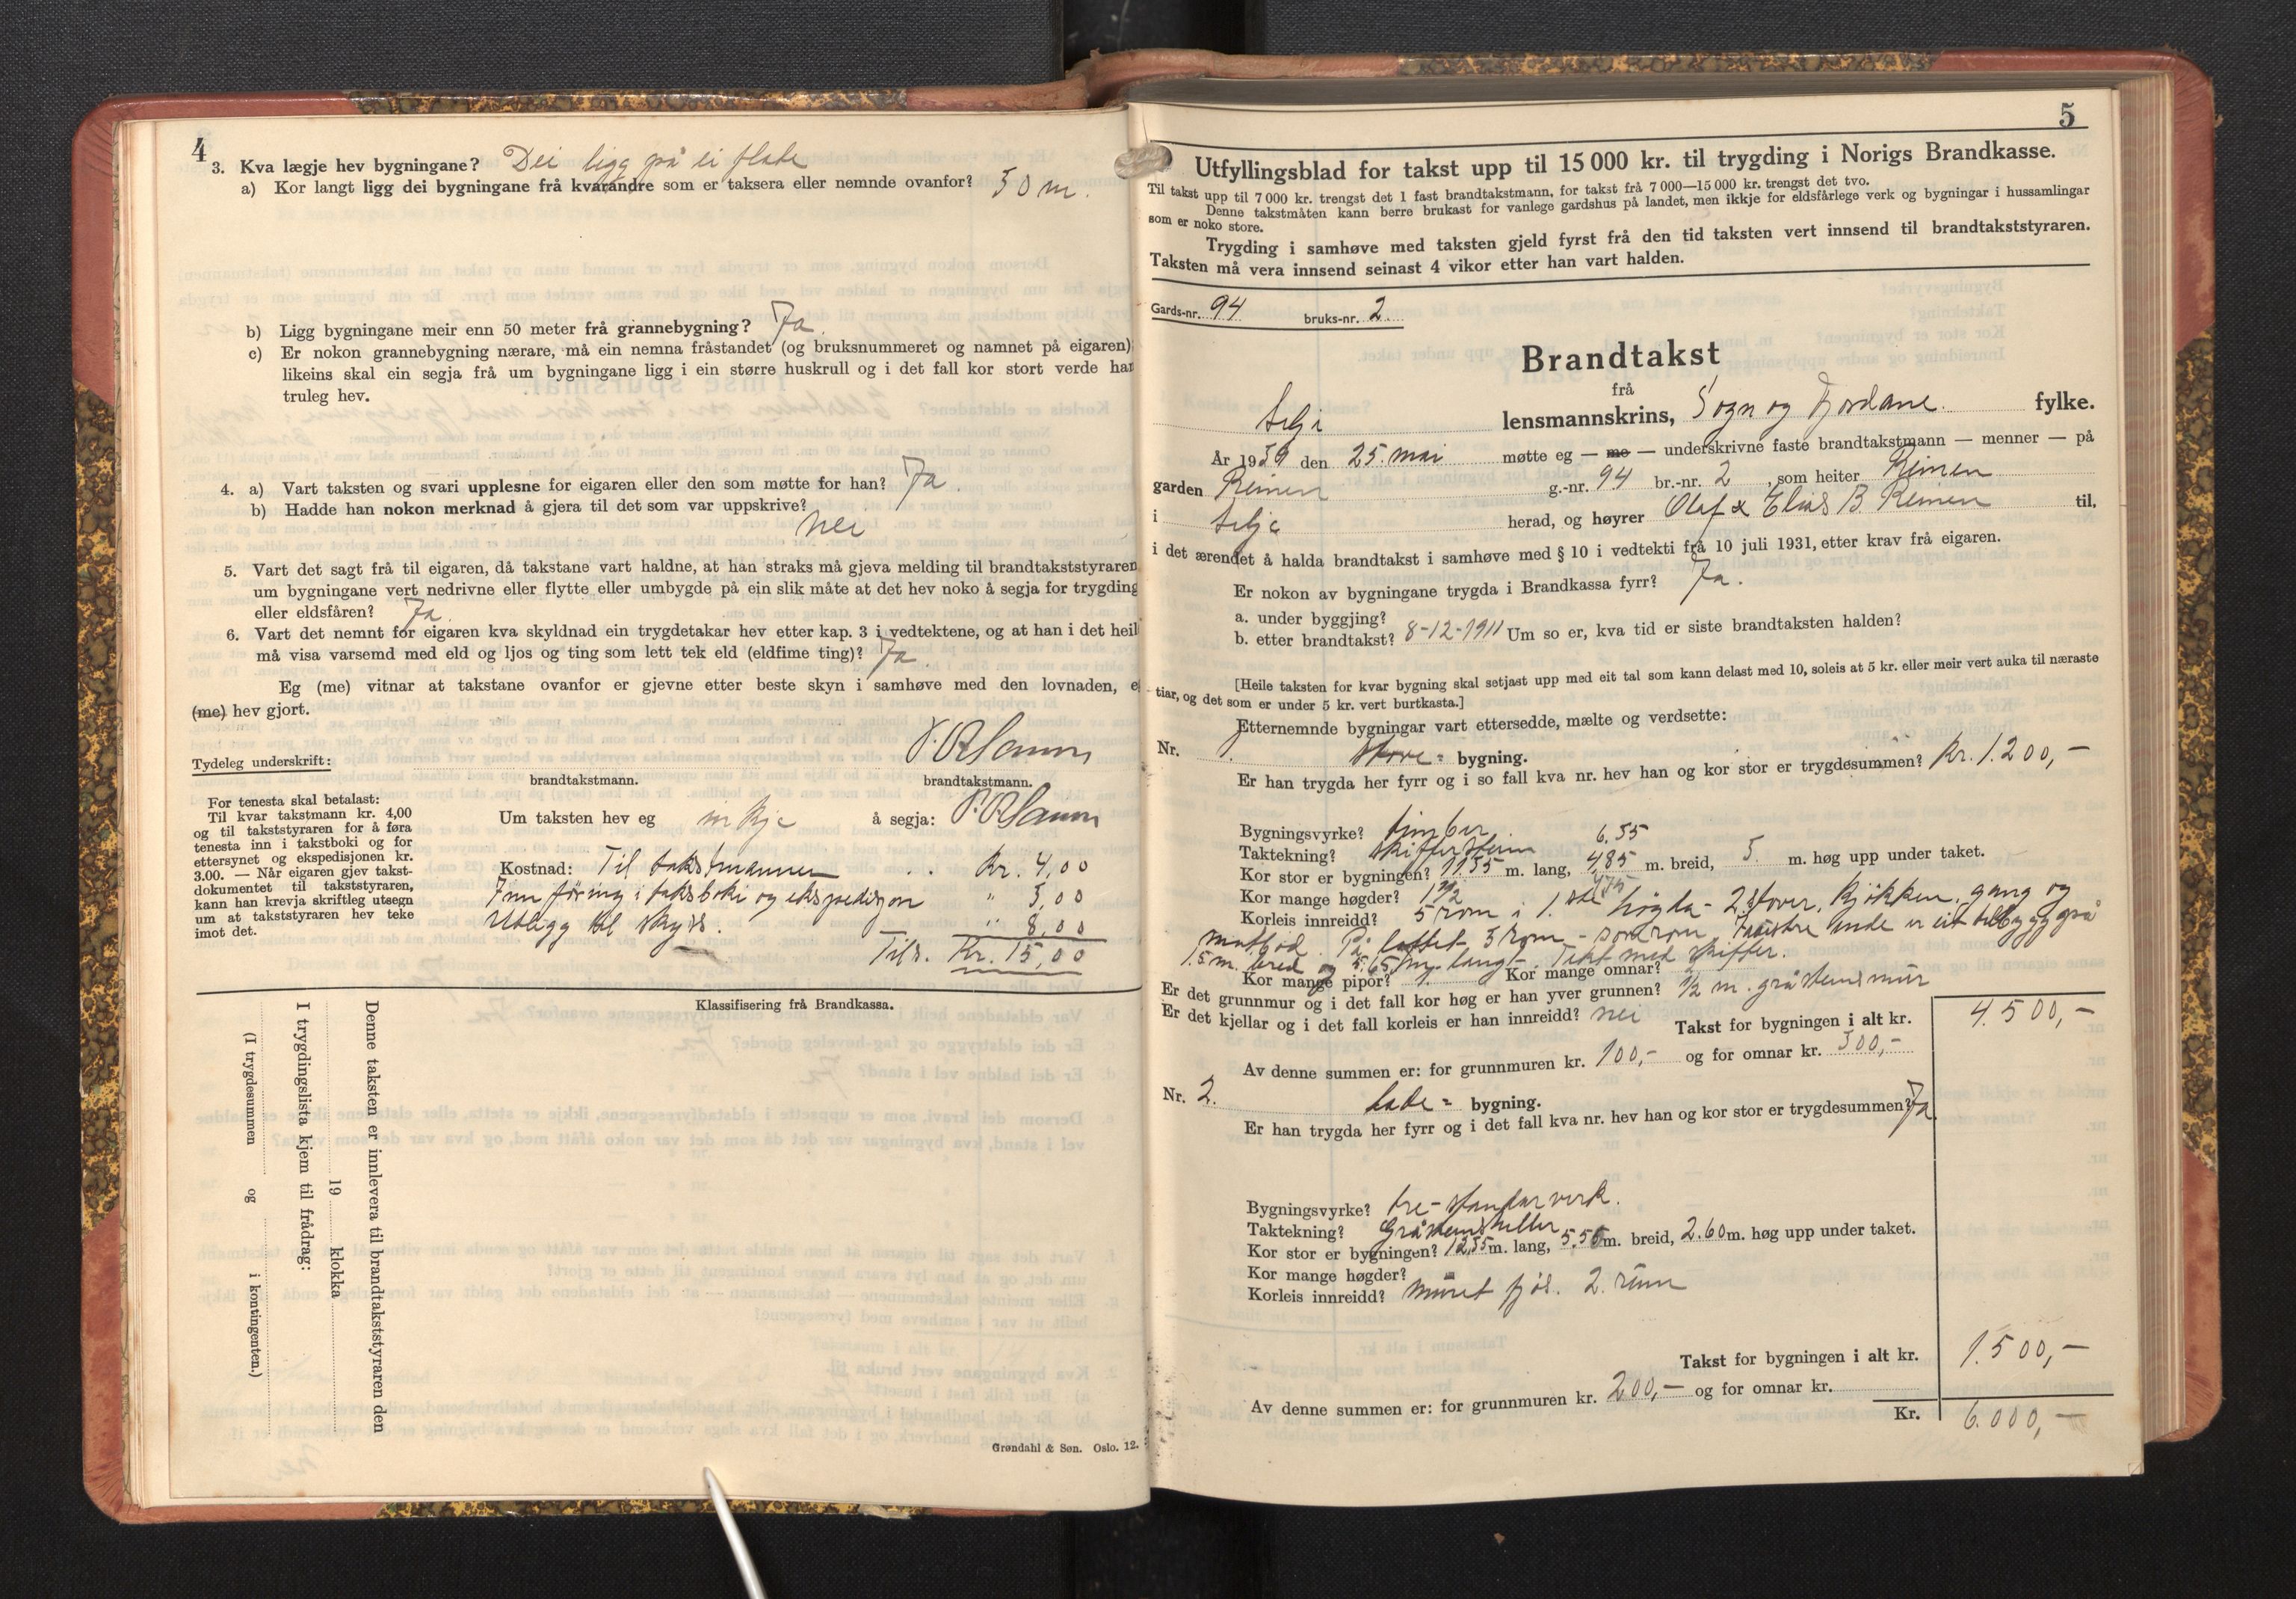 4
3. Kva lægje hev bygningane? Dei ligg på ei flate
a) Kor langt ligg dei bygningane frå kvarandre som er taksera eller nemnde ovanfor? 50 m.
b) Ligg bygningane meir enn 50 meter frå grannebygning? Ja.
c) Er nokon grannebygning nærare, må ein nemna fråstandet (og bruksnummeret og namnet på eigaren)
likeins skal ein segja frå um bygningane ligg i ein større huskrull og i det fall kor stort verde har
truleg hev.
4. a) Vart taksten og svari upplesne for eigaren eller den som møtte for han? Ja.
b) Hadde han nokon merknad å gjera til det som var uppskrive?
nei
5. Vart det sagt frå til eigaren, då takstane vart haldne, at han straks må gjeva melding til brandtakststyraren
um bygningane vert nedrivne eller flytte eller umbygde på ein slik måte at det hev noko å segja for trygding
eller eldsfåren? Ja.
6. Vart det nemnt for eigaren kva skyldnad ein trygdetakar hev etter kap. 3 i vedtektene, og at han i det heil
må visa varsemd med eld og ljos og ting som lett tek eld (eldfime ting)? Ja.
Eg (me) vitnar at takstane ovanfor er gjevne etter beste skyn i samhøve med den lovnaden, e
(me) hev gjort.
Tydeleg underskrift:
brandtakstmann. brandtakstmann.
For tenesta skal betalast:
Til kvar takstmann kr. 4,00
og til takststyraren for å føra
tenesta inn i takstboki og for
ettersynet og ekspedisjonen kr.
3.00. — Når eigaren gjev takst-
dokumentet til takststyraren,
kann han krevja skriftleg utsegn
um at takststyraren hev teke
imot det.
Um taksten hev eg inkje å segja:
Kostnad: Til takstmannen .. Kr. 4,00
Innføring i taksboki og ekspedisjon " 3,00
Utlegg til skyss. " 8,00
Tils. Kr. 15,00
Klassifisering frå Brandkassa.
Denne taksten er innlevera til brandtakststyraren den
19 klokka
I trygdingslista kjem til frådrag:
(I trygdesummen og i kontingenten.)
Grøndahl & Søn. Oslo. 12.
5
Utfyllingsblad for takst upp til 15 000 kr. til trygding i Norigs Brandkasse.
Til takst upp til 7 000 kr. trengst det 1 fast brandtakstmann, for takst frå 7 000—15 000 kr. trengst det tvo.
Denne takstmåten kann berre brukast for vanlege gardshus på landet, men ikkje for eldsfårlege verk og bygningar i hussamlingar
som er noko store.
Trygding i samhøve med taksten gjeld fyrst frå den tid taksten vert innsend til brandtakststyraren.
Taksten må vera innsend seinast 4 vikor etter han vart halden.
Gards-nr. 94 bruks-nr. 2.
Brandtakst
frå
Selje lensmannskrins, Sogn og Fjordane. fylke.
År 1939 den 25. mai møtte eg — me — underskrivne faste brandtakstmann — menner — på
garden Reinen g.-nr. 94 br.-nr. 2, som heiter Reinen
i Selje herad, og høyrer Olaf & Elias B. Reinen til,
i det ærendet å halda brandtakst i samhøve med § 10 i vedtekti frå 10 juli 1931, etter krav frå eigaren.
Er nokon av bygningane trygda i Brandkassa fyrr? Ja.
a. under byggjing?
b. etter brandtakst? 8-12-1911 Um so er, kva tid er siste brandtaksten halden?
[Heile taksten for kvar bygning skal setjast upp med eit tal som kann delast med 10, soleis at 5 kr. eller meir vert auka til næraste
tiar, og det som er under 5 kr. vert burtkasta.]
Etternemnde bygningar vart ettersedde, mælte og verdsette:
Nr. 1. Stove= bygning.
Er han trygda her fyrr og i so fall kva nr. hev han og kor stor er trygdesummen? Kr. 1.200,-
Bygningsvyrke? timber
Taktekning? skifferstein 6.55
Kor stor er bygningen? 11.55 m. lang, 4,85 m. breid, 5. m. høg upp under taket.
Kor mange høgder? 1 1/2
Korleis innreidd? 5 rom i 1.ste høgda - 2 stover, kjøkken, gang og
matbod. På loftet 3 rom - soverom. I vestre ende er eit tilbygg på
1.5 m. bred og 5.65 m. langt. Tekt med skiffer.
Kor mange pipor? 1. Kor mange omnar?
Er det grunnmur og i det fall kor høg er han yver grunnen? 1/2 m. gråsteinsmur
Er det kjellar og i det fall korleis er han innreidd? nei
Takst for bygningen i alt kr. 4.500,-
Av denne summen er: for grunnmuren kr. 100,- og for omnar kr. 300,-
Nr. 2. Lade= bygning.
Er han trygda her fyrr og i det fall kva nr. hev han og kor stor er trygdesummen? Ja
Bygningsvyrke? tre-standarverk.
Taktekning? Gråsteinsheller
Kor stor er bygningen? 12,55 m. lang, 5.55 m. breid, 2.60 m. høg upp under taket.
Kor mange høgder?
Korleis innreidd? muret fjøs. 2. rum
Takst for bygningen i alt kr. 1.500,-
Av denne summen er: for grunnmuren kr. 200,- og for omnar kr.
Kr. 6.000,-